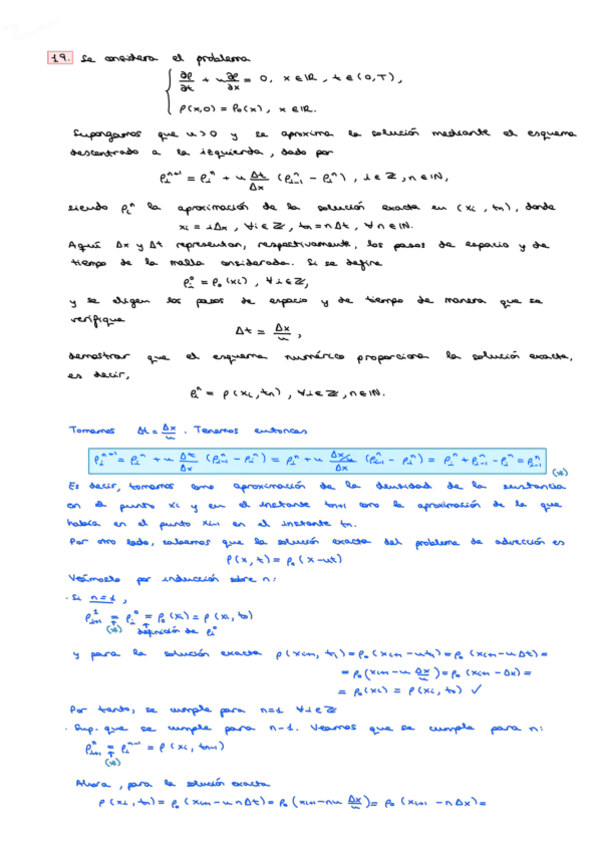 19. Se considera el problema
∂ρ/∂t + u ∂ρ/∂x = 0, x ∈ ℝ, t ∈ (0,T),
ρ(x,0) = ρ₀(x), x ∈ ℝ.
Supongamos que u>0 y se aproxima la solución mediante el esquema
descentrado a la izquierda, dado por
ρᵢⁿ⁺¹ = ρᵢⁿ + u Δt/Δx (ρᵢ₋₁ⁿ - ρᵢⁿ), i ∈ ℤ, n ∈ ℕ,
siendo ρᵢⁿ la aproximación de la solución exacta en (xᵢ, tₙ), donde
xᵢ = iΔx, ∀i ∈ ℤ, tₙ = nΔt, ∀n ∈ ℕ.
Aquí Δx y Δt representan, respectivamente, los pasos de espacio y de
tiempo de la malla considerada. Si se define
ρᵢ⁰ = ρ₀(xᵢ), ∀i ∈ ℤ,
y se eligen los pasos de espacio y de tiempo de manera que se
verifique
Δt = Δx/u,
demostrar que el esquema numérico proporciona la solución exacta,
es decir,
ρᵢⁿ = ρ(xᵢ, tₙ), ∀i ∈ ℤ, n ∈ ℕ.
Tomamos Δt = Δx/u. Tenemos entonces
ρᵢⁿ⁺¹ = ρᵢⁿ + u Δt/Δx (ρᵢ₋₁ⁿ - ρᵢⁿ) = ρᵢⁿ + u (Δx/u)/Δx (ρᵢ₋₁ⁿ - ρᵢⁿ) = ρᵢⁿ + ρᵢ₋₁ⁿ - ρᵢⁿ = ρᵢ₋₁ⁿ
(*)
Es decir, tomamos como aproximación de la densidad de la sustancia
en el punto xᵢ y en el instante tₙ₊₁ como la aproximación de la que
había en el punto xᵢ₋₁ en el instante tₙ.
Por otro lado, sabemos que la solución exacta del problema de advección es
ρ(x,t) = ρ₀(x-ut)
Veámoslo por inducción sobre n:
· Si n=1,
ρᵢ₊₁¹ = ρᵢ⁰ = ρ₀(xᵢ) = ρ(xᵢ, t₀)
(*) definición de ρᵢ⁰
y para la solución exacta ρ(xᵢ₊₁, t₁) = ρ₀(xᵢ₊₁ - ut₁) = ρ₀(xᵢ₊₁ - uΔt) =
= ρ₀(xᵢ₊₁ - u Δx/u) = ρ₀(xᵢ₊₁ - Δx) =
= ρ₀(xᵢ) = ρ(xᵢ, t₀) ✓
Por tanto, se cumple para n=1 ∀i ∈ ℤ
· Sup. que se cumple para n-1. Veamos que se cumple para n:
ρᵢ₊₁ⁿ = ρᵢⁿ⁻¹ = ρ(xᵢ, tₙ₋₁)
(*)
Ahora, para la solución exacta
ρ(xᵢ, tₙ) = ρ₀(xᵢ₊₁ - u nΔt) = ρ₀(xᵢ₊₁ - nu Δx/u) = ρ₀(xᵢ₊₁ - nΔx) =